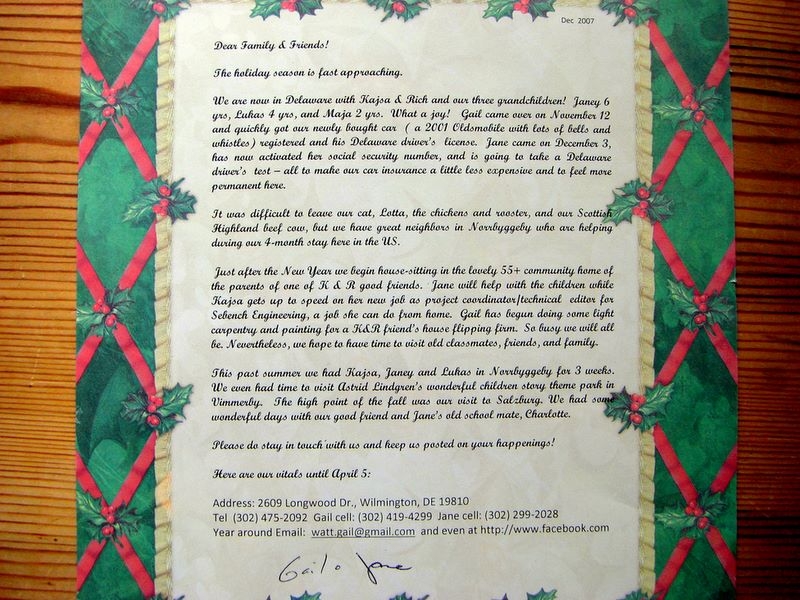 Dec 2007
Dear Family & Friends!
The holiday season is fast approaching.
We are now in Delaware with Kajsa & Rich and our three grandchildren! Janey 6
yrs, Lukas 4 yrs, and Maja 2 yrs. What a joy! Gail came over on November 12
and quickly got our newly bought car ( a 2001 Oldsmobile with lots of bells and
whistles) registered and his Delaware driver's license. Jane came on December 3,
has now activated her social security number, and is going to take a Delaware
driver's test – all to make our car insurance a little less expensive and to feel more
permanent here.
It was difficult to leave our cat, Lotta, the chickens and rooster, and our Scottish
Highland beef cow, but we have great neighbors in Norrbyggeby who are helping
during our 4-month stay here in the US.
Just after the New Year we begin house-sitting in the lovely 55+ community home of
the parents of one of K & R good friends. Jane will help with the children while
Kajsa gets up to speed on her new job as project coordinator/technical editor for
Sebench Engineering, a job she can do from home. Gail has begun doing some light
carpentry and painting for a K&R friend's house flipping firm. So busy we will all
be. Nevertheless, we hope to have time to visit old classmates, friends, and family.
This past summer we had Kajsa, Janey and Lukas in Norrbyggeby for 3 weeks.
We even had time to visit Astrid Lindgren's wonderful children story theme park in
Vimmerby. The high point of the fall was our visit to Salzburg. We had some
wonderful days with our good friend and Jane's old school mate, Charlotte.
Please do stay in touch with us and keep us posted on your happenings!
Here are our vitals until April 5:
Address: 2609 Longwood Dr., Wilmington, DE 19810
Tel (302) 475-2092 Gail cell: (302) 419-4299 Jane cell: (302) 299-2028
Year around Email: watt.gail@gmail.com and even at http://www.facebook.com
Gail o Jane